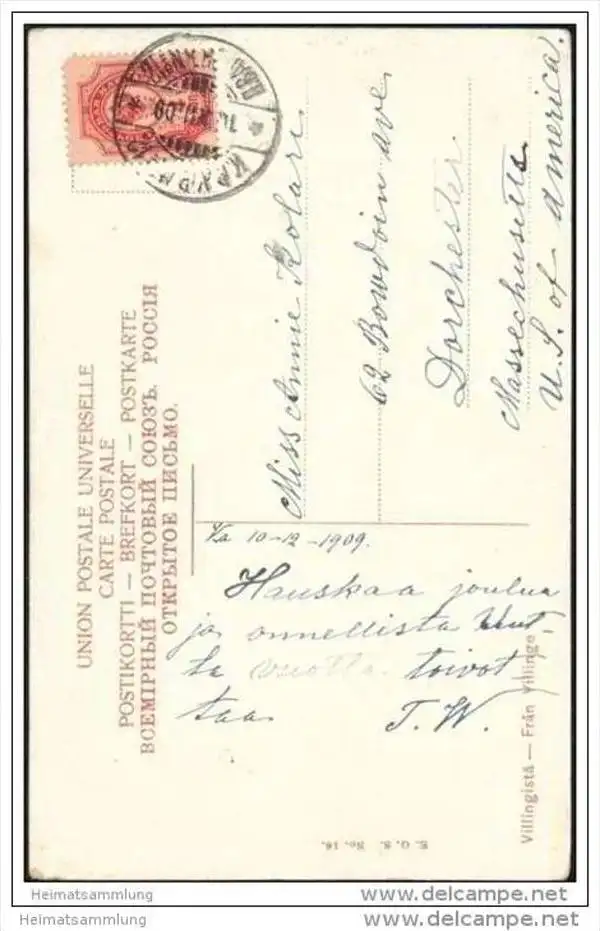 UNION POSTALE UNIVERSELLE
CARTE POSTALE
POSTIKORTTI — BREFKORT — POSTKARTE
ВСЕМІРНЫЙ ПОЧТОВЫЙ СОЮЗЪ. РОССІЯ
ОТКРЫТОЕ ПИСЬМО.
Miss Annie Kolari
62 Bowdoin ave
Dorchester
Massechusetts
U.S. of America.
10-12-1909.
Hauskaa joulua
ja onnellista uut-
ta vuotta toivot-
taa T. W.
Villingistä — Från Villinge
E. G. S. No. 16.
Heimatsammlung
delcampe.net
Heimatsammlung
delcampe.net